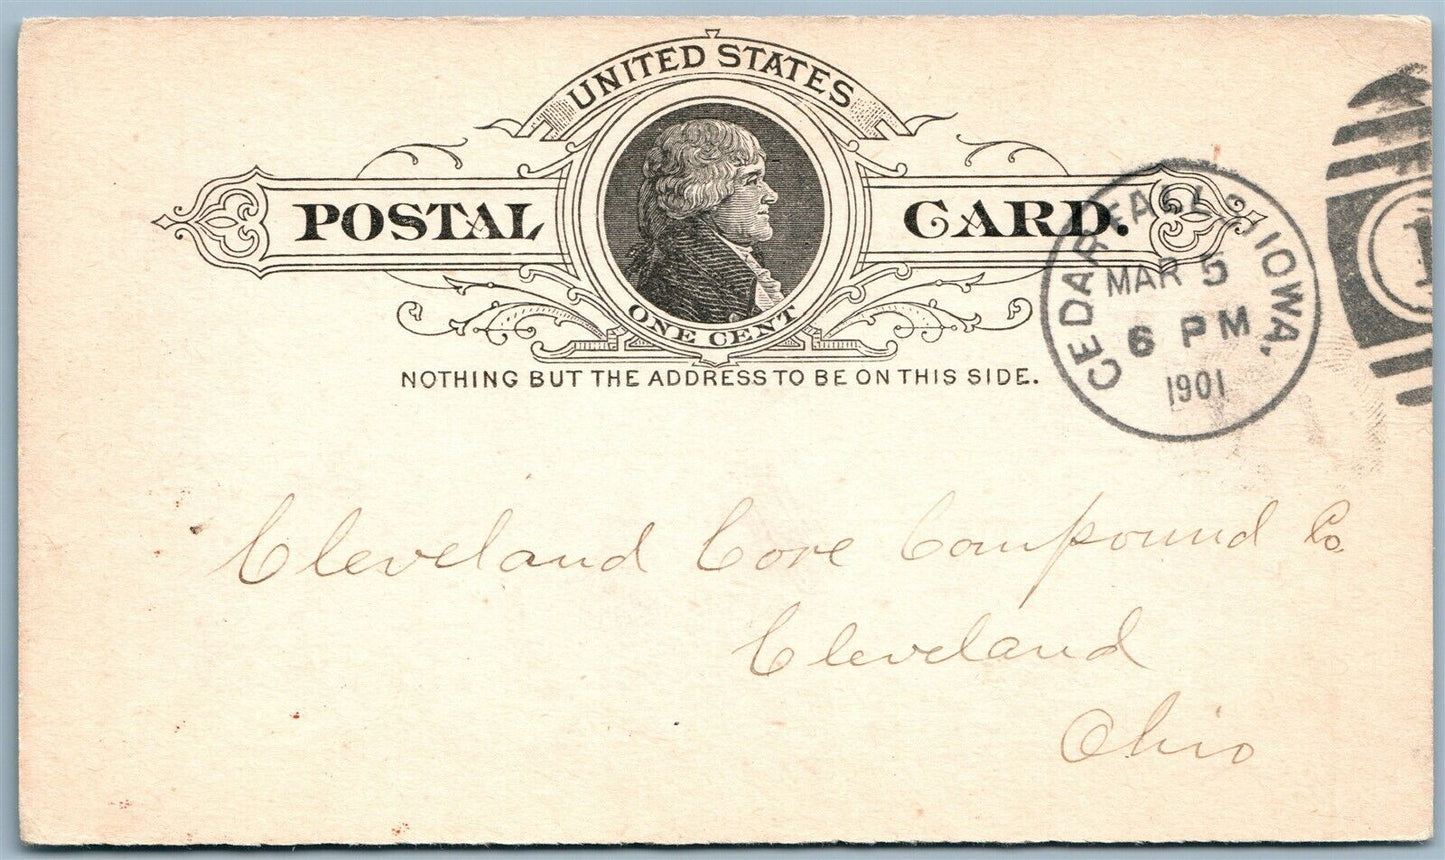 UNITED STATES
POSTAL CARD.
ONE CENT
NOTHING BUT THE ADDRESS TO BE ON THIS SIDE.
CEDAR FALLS IOWA.
MAR 5
6 PM
1901
1
Cleveland Core Compound Co.
Cleveland
Ohio